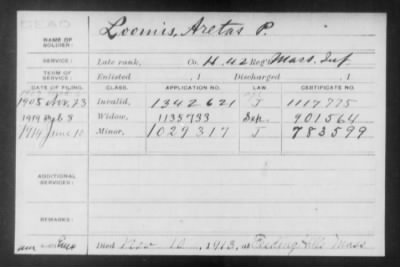 DEAD
NAME OF SOLDIER: Loomis, Aretas P.
SERVICE: Late rank, Co. H. 42 Reg't Mass. Inf.
TERM OF SERVICE: Enlisted , 1 Discharged , 1
DATE OF FILING. CLASS. APPLICATION NO. LAW. CERTIFICATE NO.
1905 Nov. 23 Invalid, 1342621 J 1117775
1914 3 Widow, 1135733 901564
1914 June 10 Minor, 1029317 J 783599
ADDITIONAL SERVICES:
REMARKS:
Died Nov 10, 1913, at Feeding Hills Mass